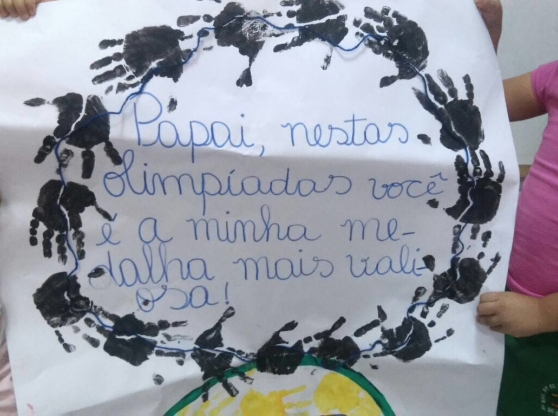 Papai, nestas
olimpíadas você
é a minha me-
dalha mais vali-
osa!